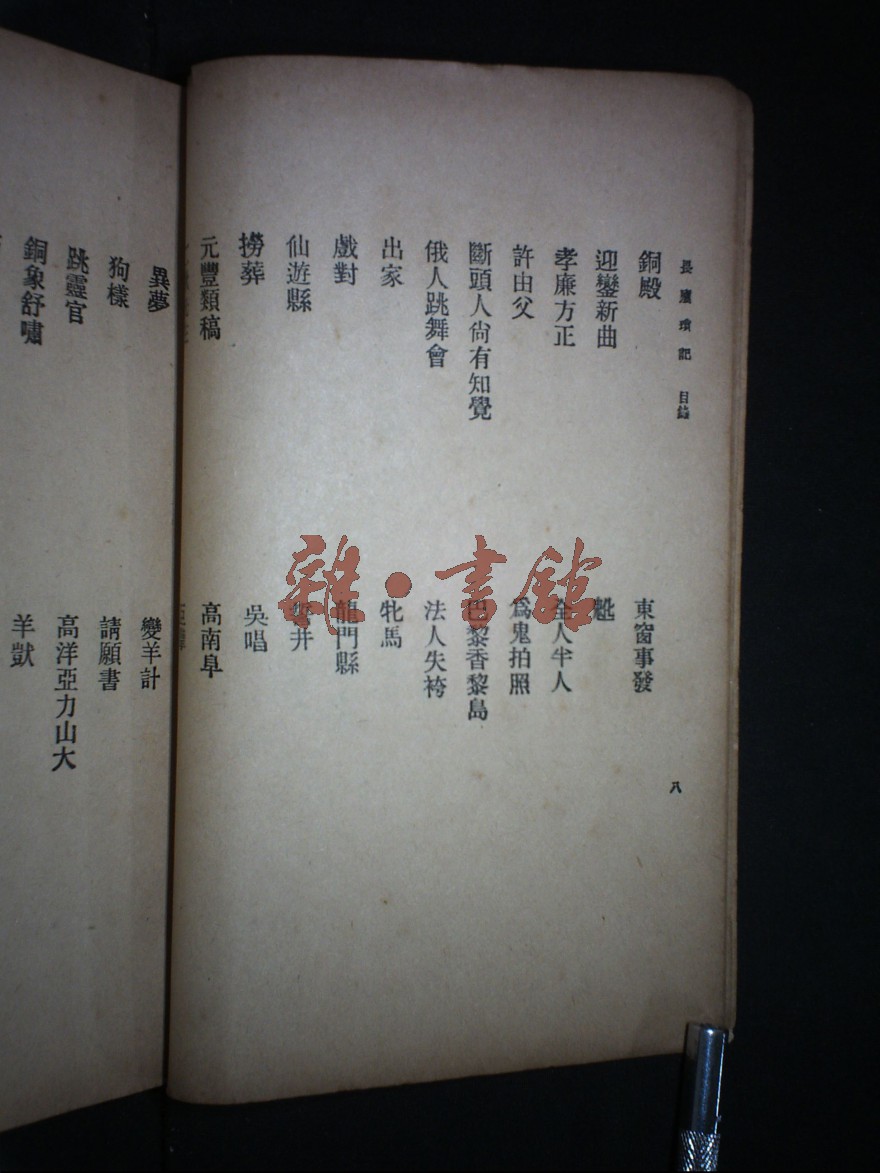 畏廬瑣記 目錄
八
銅殿
東窗事發
迎鑾新曲
孝廉方正
全人半人
許由父
爲鬼拍照
斷頭人尚有知覺
巴黎香黎島
俄人跳舞會
法人失袴
出家
牝馬
戲對
龍門縣
仙遊縣
井
撈葬
吳唱
元豐類稿
高南阜
異夢
變羊計
狗樣
請願書
跳靈官
高洋亞力山大
銅象舒嘯
羊獃
雜·書館